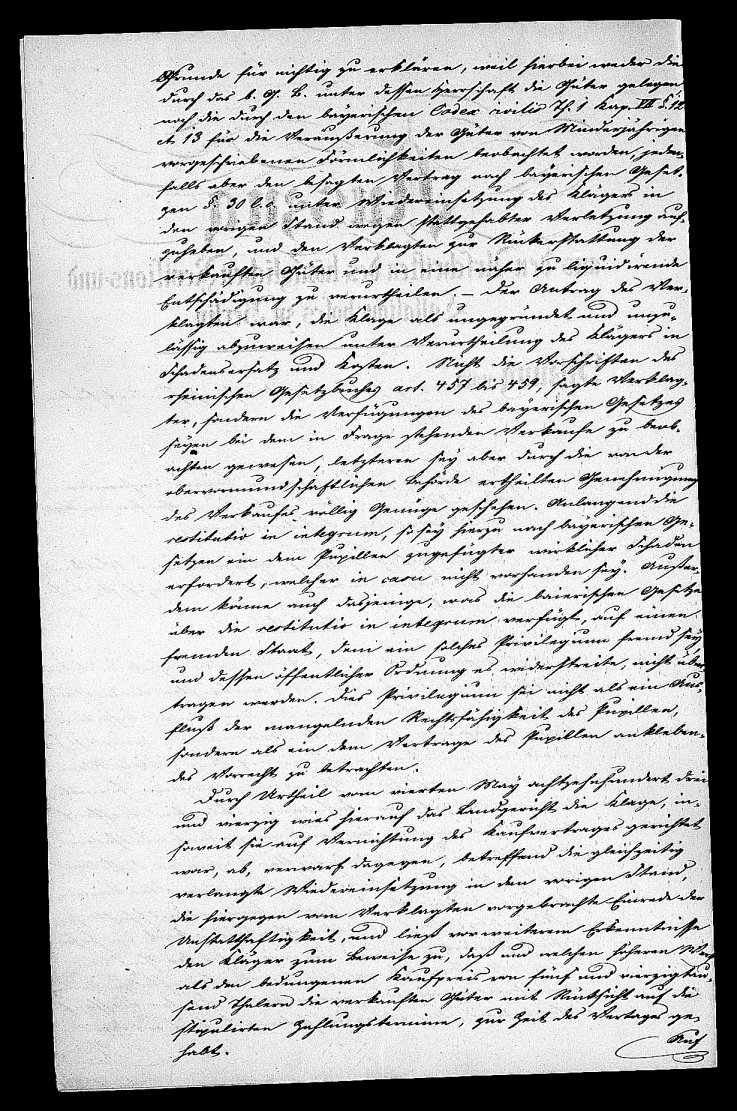 Grunde für nichtig zu erklären, weil hierbei weder die
durch das b. G. B. unter dessen Herrschaft die Güter gelegen,
noch die durch den bayerischen Codex civilis Th. 1 Kap. VII §. 12
et 13 für die Veraußerung der Güter von Minderjährigen
vorgeschriebenen Förmlichkeiten beobachtet worden, jeden-
falls aber den besagten Vertrag nach bayerischen Geset-
zen §. 30 l. c. unter Wiedereinsetzung des Klägers in
den vorigen Stand wegen stattgehabter Verletzung auf-
zuheben, und den Verklagten zur Rückerstattung der
verkauften Güter und in eine näher zu liquidirende
Entschädigung zu verurtheilen. – Der Antrag des Ver-
klagten war, die Klage als ungegründet und unzu-
lässig abzuweisen unter Verurtheilung des Klägers in
Schadensersatz und Kosten. Nicht die Vorschriften des
rheinischen Gesetzbuches art. 457 bis 459, sagte Verklag-
ter, sondern die Verfügungen des bayerischen Gesetzes
seyen bei dem in Frage stehenden Verkaufe zu beob-
achten gewesen, letzteren sey aber durch die von der
obervormundschaftlichen Behörde ertheilten Genehmigung
des Verkaufes völlig Genüge geschehen. Anlangend die
restitutio in integrum, so sey hierzu nach bayerischen Ge-
setzen ein dem Pupillen zugefügter wirklicher Schaden
erfordert, welcher in casu nicht vorhanden sey. Außer-
dem könne auch dasjenige, was die baierischen Gesetze
über die restitutio in integrum verfügt, auf einen
fremden Staat, dem ein solches Privilegium fremd sey
und dessen öffentlicher Ordnung es widerstreite, nicht über-
tragen werden. Dies Privilegium sei nicht als ein Aus-
fluß der mangelnden Rechtsfähigkeit des Pupillen,
sondern als ein dem Vertrage des Pupillen ankleben-
des Vorrecht zu betrachten.
Durch Urtheil vom vierten May achtzehnhundert drei
und vierzig wies hierauf das Landgericht die Klage, in-
soweit sie auf Vernichtung des Kaufvertrages gerichtet
war, ab, verwarf dagegen, betreffend die gleichzeitig
verlangte Wiedereinsetzung in den vorigen Stand,
die hiergegen vom Verklagten vorgebrachte Einrede der
Unstatthaftigkeit, und ließ vor weiterem Erkenntnisse
den Kläger zum Beweise zu, daß und welchen höheren Werth
als den bedungenen Kaufpreis von fünf und vierzigtau-
send Thalern die verkauften Güter mit Rücksicht auf die
stipulirten Zahlungstermine, zur Zeit des Vertages ge-
habt.
Auf